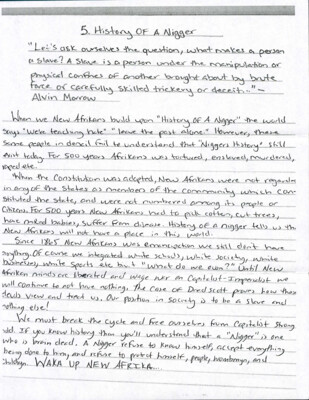 5. History Of A Nigger
"Let's ask ourselves the question, what makes a person
a slave? A slave is a person under the manipulation or
physical confines of another brought about by brute
force or carefully skilled trickery or deceit..." -
Alvin Morrow
When we New Afrikans build upon "History Of A Nigger" the world
says "We're teaching hate" "leave the past alone." However, these
same people in denial fail to understand that "Niggers History" still
exist today. For 500 years Afrikans was tortured, enslaved, murdered,
raped etc.
When the Constitution was adopted, New Afrikans were not regarded
in any of the States as members of the community which con-
stituted the State, and were not numbered among its people or
Citizen. For 500 years New Afrikans had to pick cotton, cut trees,
have naked babies, suffer from disease. History of a nigger tells us the
New Afrikans will not have a place in this world.
Since 1865 New Afrikans was Reconstruction we still don't have
anything. Of course we integrated white schools, white society, white
businesses, white sports etc. but "What do we own?" Until New
Afrikan minds are liberated and wage war on Capitalist-Imperialist we
will continue to not have nothing. The case of Dred Scott proves how these
devils view and treat us. Our position in society is to be a slave and
nothing else!
We must break the cycle and free ourselves from Capitalist strong
hold. If you know history then you'll understand that a "Nigger" is one
who is brain dead. A Nigger refuse to know himself, accept everything
being done to him, and refuse to protect himself, people,
children. WAKE UP NEW AFRIKA...